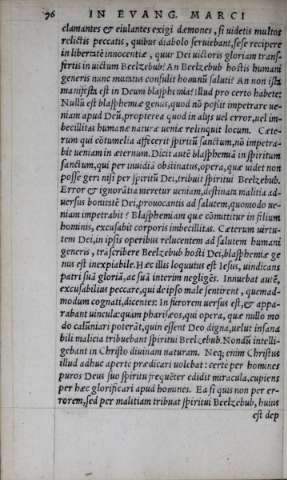 96 IN EVANG. MARCI
clamantes & eiulantes exigi dæmones, si uidetis multos
relictis peccatis, quibus diabolo seruiebant, sese recipere
in libertatē innocentiæ, quur Dei uictoris gloriam trans-
fertis in uictum Beelzebub? An Beelzebub hostis humani
generis nunc mutatus consulit hominū saluti? An non ista
manifesta est in Deum blasphemia? illud pro certo habete:
Nullū est blasphemiæ genus, quod nō possit impetrare ue-
niam apud Deū, propterea quod in alijs uel error, uel im-
becillitas humanæ naturæ ueniæ relinquit locum. Cæte-
rum qui cōtumelia affecerit spiritū sanctum, nō impetra-
bit ueniam in æternum. Dicit autē blasphemiā in spiritum
sanctum, qui per inuidiā obstinatus, opera, quæ uidet non
posse geri nisi per spiritū Dei, tribuit spiritui Beelzebub.
Error & ignorātia meretur ueniam, destinata malitia ad-
uersus bonitatē Dei, prouocantis ad salutem, quomodo ue-
niam impetrabit? Blasphemiam quæ cōmittitur in filium
hominis, excusabit corporis imbecillitas. Cæterum uirtu-
tem Dei, in ipsis operibus relucentem ad salutem humani
generis, trāscribere Beelzebub hosti Dei, blasphemiæ ge
nus est inexpiabile. Hæc illis loquutus est Iesus, uindicans
patri suā gloriā, ac suā interim negligēs. Innuebat autē,
excusabilius peccare, qui de ipso male sentirent, quemad-
modum cognati, dicentes: In furorem uersus est, & appa-
rabant uincula: quàm pharisæos, qui opera, quæ nullo mo
do calūniari poterāt, quin essent Deo digna, uelut insana
bili malicia tribuebant spiritui Beelzebub. Nondū intelli-
gebant in Christo diuinam naturam. Neq; enim Christus
illud adhuc aperte prædicari uolebat: certe per homines
puros Deus suo spiritu frequēter edidit miracula, cupiens
per hæc glorificari apud homines. Ea si quis non per er-
rorem, sed per malitiam tribuat spiritui Beelzebub, huius
est dep